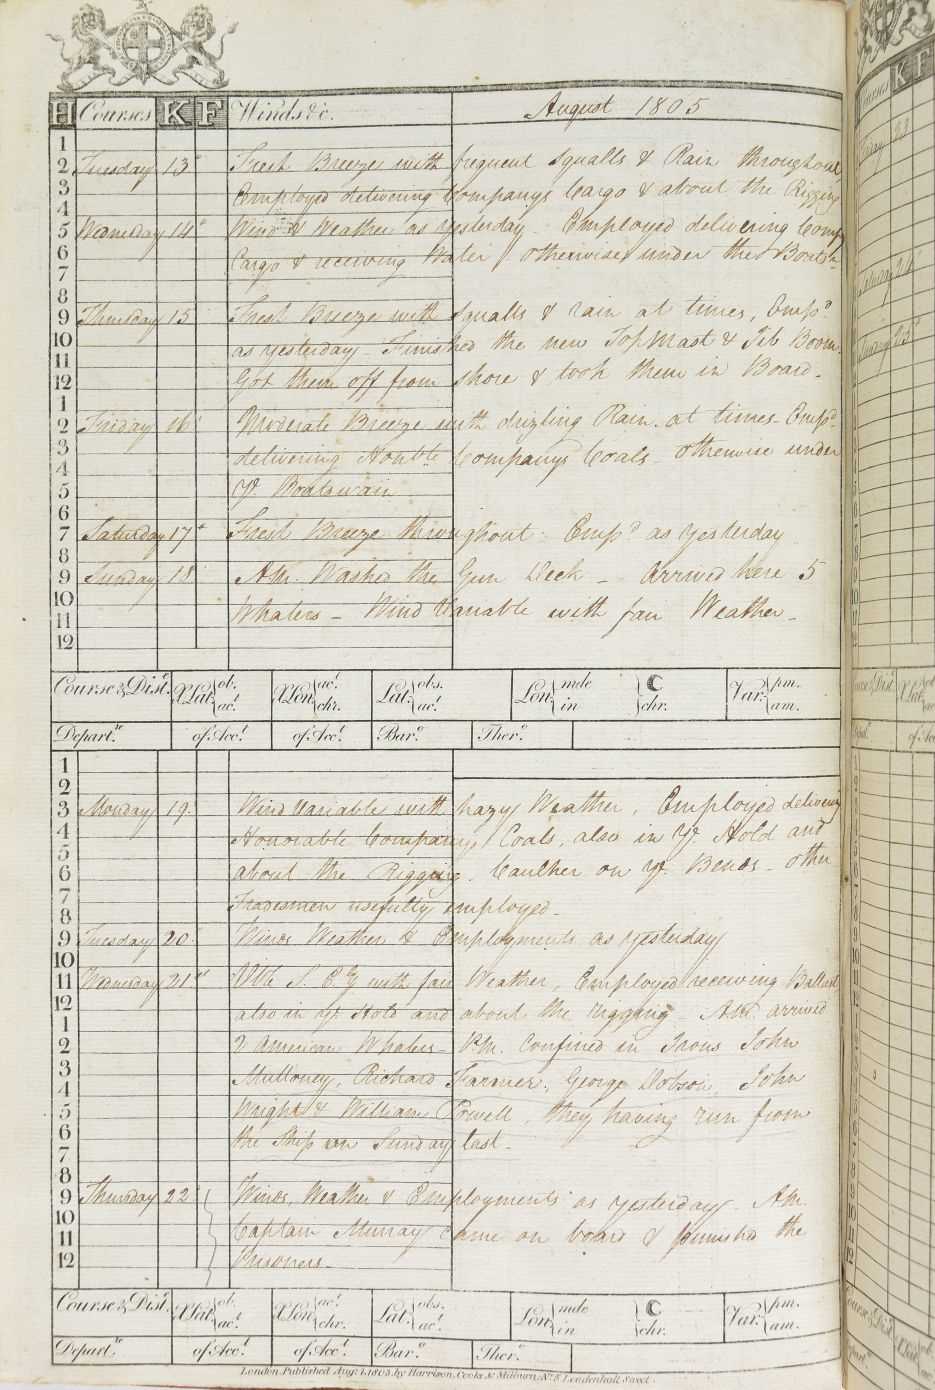 H Courses K F Winds &c. August 1805
1
2 Tuesday 13th Fresh Breezes with frequent Squalls & Rain throughout
3 Employed delivering Companys Cargo & about the Rigging
4
5 Wednesday 14th Wind & Weather as yesterday. Employed delivering Comps
6 Cargo & receiving Water, otherwise under the Boatsn
7
8
9 Thursday 15 Fresh Breeze with Squalls & rain at times, Empd
10 as yesterday - Finished the new TopMast & Jib Boom.
11
12 Got them off from shore & took them in Board.
1
2 Friday 16 Moderate Breeze with drizling Rain at times - Empd
3 delivering Honble Companys Coals - otherwise under
4
5 Ye Boatswain
6
7 Saturday 17th Fresh Breeze throughout - Empd as yesterday
8
9 Sunday 18 AM. Washed the Gun Deck - Arrived here 5
10
11 Whalers - Wind Variable with fair Weather -
12
Course & Distce. X Lat. ob. acct. X Lon. acct. chr. Lat. obs. acct. Lon. mde in ☾ chr. Var. pm. am.
Departre. of Acct. of Acct. Baro. Thero.
1
2
3 Monday 19. Wind Variable with hazy Weather, Employed delivering
4 Honorable Companys Coals, also in Ye Hold and
5
6 about the Rigging. Caulker on Ye Bends - other
7
8 Tradesmen usefully employed -
9 Tuesday 20 Winds Weather & Employments as yesterday
10
11 Wednesday 21st Wind S. E.ly with fair Weather, Employed receiving Ballast
12 also in Ye Hold and about the rigging - AM. arrived
1
2 2 American Whalers - PM. Confined in Irons John
3
4 Mulloney, Richard Farmer, George Dobson, John
5 Wright & William Powell, they having run from
6 the Ship on Sunday last -
7
8
9 Thursday 22 Winds, Weather & Employments as yesterday. AM.
10
11 Captain Murray came on board & punished the
12 Prisoners -
Course & Distce. X Lat. ob. acct. X Lon. acct. chr. Lat. obs. acct. Lon. mde in ☾ chr. Var. pm. am.
Departre. of Acct. of Acct. Baro. Thero.
London Published Augt. 1, 1803, by Harrison, Cooke & Milburn, No. 8 Leadenhall Street.